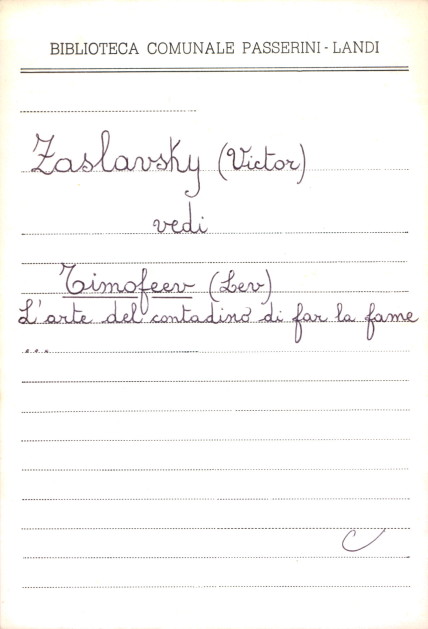 BIBLIOTECA COMUNALE PASSERINI - LANDI
Zaslavsky (Victor)
vedi
Timofeev (Lev)
L'arte del contadino di far la fame
...